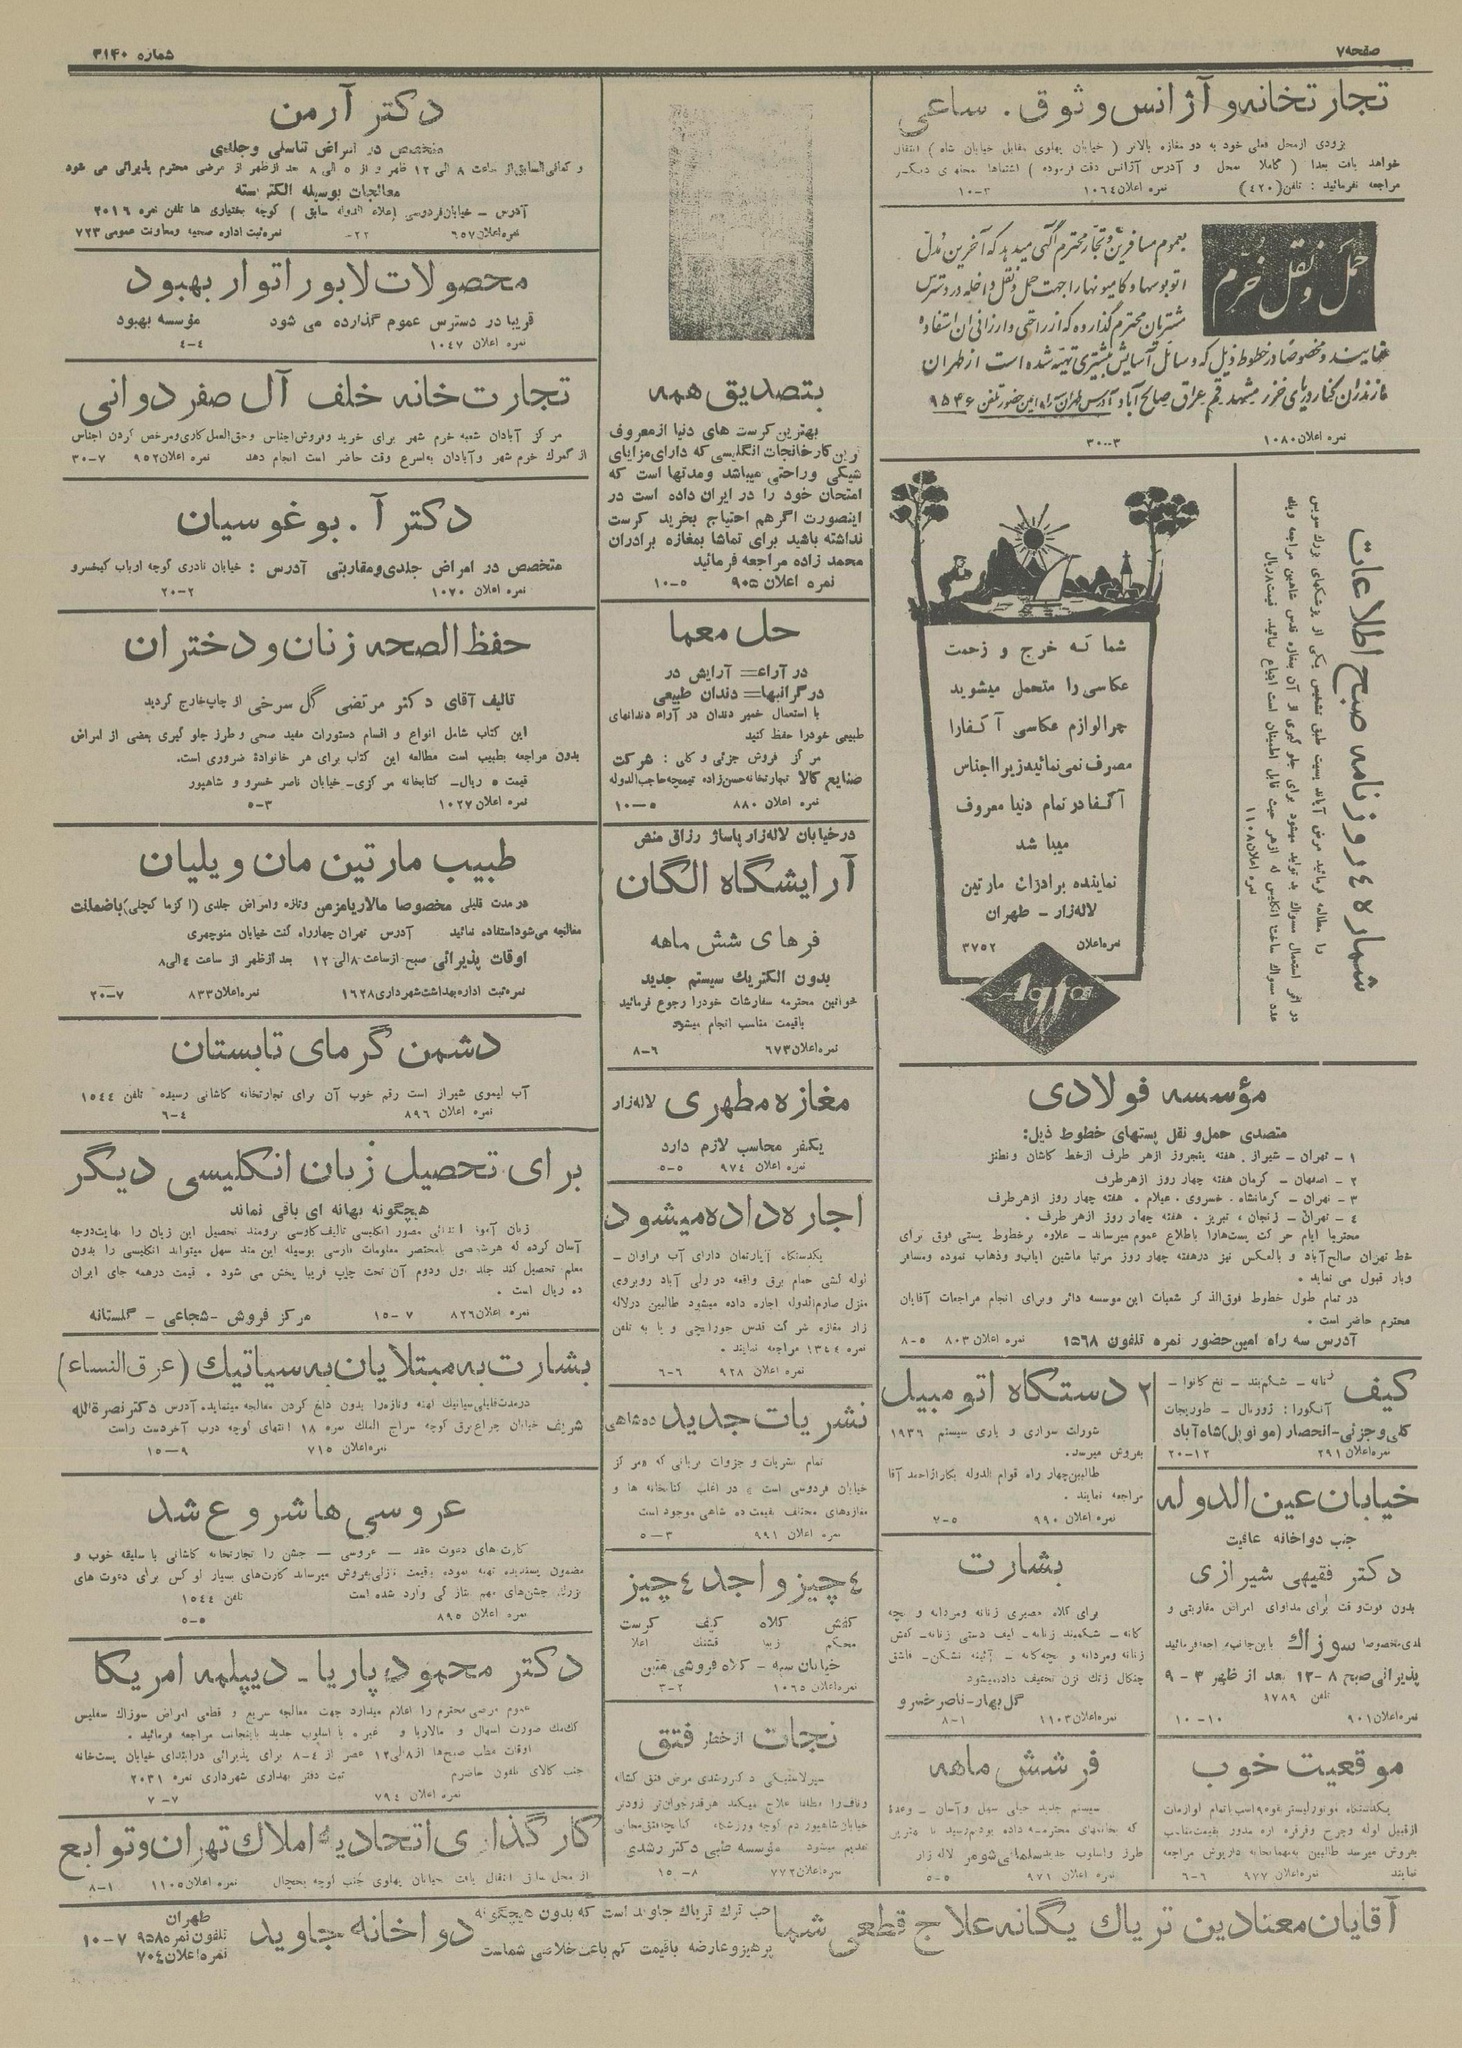 صفحه ۷
شماره ۳۱۴۰
تجارتخانه و آژانس وثوق . ساعی
بزودی ازمحل فعلی خود به دو مغازه بالاتر ( خیابان پهلوی مقابل خیابان شاه ) انتقال
خواهد یافت بعدا ( کاملا محل و آدرس آژانس دقت فرموده ) اشتباها بمحلهای دیگر
مراجعه نفرمائید : تلفن (۴۲۰) نمره اعلان ۱۰۶۴ ۳–۱۰
حمل و نقل خرم
بعموم مسافرین و تجار محترم آگهی میدهد که آخرین مدل
اتوبوسها و کامیونها را جهت حمل و نقل داخله در دسترس
مشتریان محترم گذارده که از راحتی و ارزانی آن استفاده
نمایند و مخصوصا در خطوط ذیل که وسائل آسایش بیشتری تهیه شده است از طهران
مازندران کنار دریای خزر مشهد قم عراق صالح آباد و آدرس طهران سه راه امین حضور تلفن ۹۵۴۶
نمره اعلان ۱۰۸۰ ۳...۳۰
شماره ٤ روزنامه صبح اطلاعات
را مطالعه فرمائید مرض آیاند بسیت طبق تشخیص یکی از پزشکهای بزرك سویس
در اثر استعمال مسواك بد تولید میشود برای جلو گیری از آن بمغازه قدس شاهین مراجعه ویك
عدد مسواك ساخت انگلیس که ازهر حیث قابل اطمینان است ابتیاع نمائید. قیمت ۸ ریال
نمره اعلان ۱۱۰۸
شما که خرج و زحمت
عکاسی را متحمل میشوید
چرالوازم عکاسی آگفارا
مصرف نمی نمائید زیرا اجناس
آگفا در تمام دنیا معروف
میبا شد
نماینده برادران مارتین
لاله زار – طهران
نمره اعلان ۳۷۵۲
Agfa
مؤسسه فولادی
متصدی حمل و نقل پستهای خطوط ذیل:
۱ – تهران – شیراز . هفته پنجروز ازهر طرف ازخط کاشان ونطنز
۲ – اصفهان – کرمان هفته چهار روز ازهرطرف
۳ – تهران – کرمانشاه . خسروی . عیلام . هفته چهار روز ازهرطرف
٤ – تهران – زنجان ، تبریز . هفته چهار روز ازهر طرف .
محترما ایام حرکت پستهارا باطلاع عموم میرساند – علاوه برخطوط پستی فوق برای
خط تهران صالح آباد و بالعکس نیز درهفته چهار روز مرتبا ماشین ایاب وذهاب نموده ومسافر
وبار قبول می نماید .
در تمام طول خطوط فوق الذکر شعبات این موسسه دائر وبرای انجام مراجعات آقایان
محترم حاضر است .
آدرس سه راه امین حضور نمره تلفون ۱۵۶۸ نمره اعلان ۸۰۳ ۵–۸
کیف زنانه – شکم بند – نخ کانوا –
آنگورا : ژورنال – طوریجات
کلی و جزئی – انحصار (مونوپل) شاه آباد
نمره اعلان ۲۹۱ ۱۲–۲۰
خیابان عین الدوله
جنب دواخانه عاقبت
دکتر فقیهی شیرازی
بدون فوت وقت برای مداوای امراض مقاربتی و
جلدی مخصوصا سوزاك باینجانب مراجعه فرمائید
پذیرائی صبح ۸–۱۲ بعد از ظهر ۳–۹
تلفن ۹۷۸۹
نمره اعلان ۹۰۱ ۱۰–۱۰
موقعیت خوب
یکدستگاه موتور لیستر بقوه ۹ اسب باتمام لوازمات
ازقبیل لوله وچرخ وفرفره اره مدور بقیمت مناسب
بفروش میرسد طالبین بمهمانخانه داریوش مراجعه
نمایند نمره اعلان ۹۷۷ ۶–۶
۲ دستگاه اتومبیل
شورلت سواری و باری سیستم ۱۹۳۶
بفروش میرسد .
طالبین چهار راه قوام الدوله بکاراژ احمد آقا
مراجعه نمایند .
نمره اعلان ۹۹۰ ۵–۷
بشارت
برای کلاه حصیری زنانه ومردانه و بچه
گانه – شکمبند زنانه – کیف دستی زنانه – کفش
زنانه ومردانه و بچه گانه – آئینه نشکن – قاشق
چنگال زنك نزن تخفیف داده میشود
گل بهار – ناصر خسرو
نمره اعلان ۱۱۰۳ ۱–۸
فر شش ماهه
سیستم جدید خیلی سهل وآسان – وعده
که بخانمهای محترمه داده بودیم رسید با بهترین
طرز واسلوب جدید سلمانی شومر لاله زار
نمره اعلان ۹۷۱ ۵–۵
بتصدیق همه
بهترین کرست های دنیا ازمعروف
ترین کارخانجات انگلیسی که دارای مزایای
شیکی وراحتی میباشد ومدتها است که
امتحان خود را در ایران داده است در
اینصورت اگرهم احتیاج بخرید کرست
نداشته باشید برای تماشا بمغازه برادران
محمد زاده مراجعه فرمائید
نمره اعلان ۹۰۵ ۵–۱۰
حل معما
در آراء = آرایش در
درگرانبها = دندان طبیعی
با استعمال خمیر دندان در آراء دندانهای
طبیعی خودرا حفظ کنید
مرکز فروش جزئی و کلی : شرکت
صنایع کالا تجارتخانه حسن زاده تیمچه حاجب الدوله
نمره اعلان ۸۸۰ ۵–۱۰
درخیابان لاله زار پاساژ رزاق منش
آرایشگاه الگان
فرهای شش ماهه
بدون الکتریك سیستم جدید
خوانین محترمه سفارشات خودرا رجوع فرمائید
باقیمت مناسب انجام میشود
نمره اعلان ۶۷۳ ۶–۸
مغازه مطهری لاله زار
یکنفر محاسب لازم دارد
نمره اعلان ۹۷٤ ۵–۵
اجاره داده میشود
یکدستگاه آپارتمان دارای آب فراوان –
لوله کشی حمام برق واقعه در ولی آباد روبروی
منزل صارم الدوله اجاره داده میشود طالبین درلاله
زار مغازه شرکت قدس جورابچی و یا به تلفن
نمره ۱۳٤٤ مراجعه نمایند .
نمره اعلان ۹۲۸ ۶–۶
نشریات جدید ده شاهی
تمام نشریات و جزوات بریانی که مرکز
خیابان فردوسی است در اغلب کتابخانه ها و
مغازه های مختلف بقیمت ده شاهی موجود است
نمره اعلان ۹۹۱ ۳–۵
٤ چیز واجد ٤ چیز
کفش کلاه کیف کرست
محکم زیبا قشنك اعلا
خیابان سپه – کلاه فروشی متین
نمره اعلان ۱۰۶۵ ۲–۳
نجات از خطر فتق
سیرلاستیکی دکتر رشدی مرض فتق کشاله
وناف را مطلقا علاج میکند هرقدر جوان تر زودتر
خیابان شاهپور دم کوچه ورزشگاه کتابچه فتق مجانی
تقدیم میشود مؤسسه طبی دکتر رشدی
نمره اعلان ۷۷۲ ۸–۱۵
دکتر آرمن
متخصص در امراض تناسلی وجلدی
و کمافی السابق از ساعت ۸ الی ۱۲ ظهر و از ۵ الی ۸ بعد ازظهر از مرضی محترم پذیرائی می شود
معالجات بوسیله الکتریسته
آدرس – خیابان فردوسی (علاء الدوله سابق ) کوچه بختیاری ها تلفن نمره ۳۰۱۶
نمره اعلان ۶۵۷ –۲۲ نمره ثبت اداره صحیه ومعاونت عمومی ۷۲۳
محصولات لابوراتوار بهبود
قریبا در دسترس عموم گذارده می شود مؤسسه بهبود
نمره اعلان ۱۰٤۷ ٤–٤
تجارت خانه خلف آل صفر دوانی
مرکز آبادان شعبه خرم شهر برای خرید وفروش اجناس وحق العمل کاری ومرخص کردن اجناس
ازگمرك خرم شهر وآبادان به اسرع وقت حاضر است انجام دهد نمره اعلان ۹۵۲ ۷–۳۰
دکتر آ . بوغوسیان
متخصص در امراض جلدی ومقاربتی آدرس : خیابان نادری کوچه ارباب کیخسرو
نمره اعلان ۱۰۷۰ ۲–۲۰
حفظ الصحه زنان و دختران
تالیف آقای دکتر مرتضی گل سرخی از چاپ خارج گردید
این کتاب شامل انواع و اقسام دستورات مفید صحی و طرز جلو گیری بعضی از امراض
بدون مراجعه بطبیب است مطالعه این کتاب برای هر خانوادهٔ ضروری است.
قیمت ۵ ریال – کتابخانه مرکزی – خیابان ناصر خسرو و شاهپور
نمره اعلان ۱۰۲۷ ۳–۵
طبیب مارتین مان ویلیان
درمدت قلیلی مخصوصا مالاریا مزمن وتازه وامراض جلدی (اکزما کچلی) باضمانت
معالجه می شود استفاده نمائید آدرس تهران چهارراه کنت خیابان منوچهری
اوقات پذیرائی صبح ازساعت ۸ الی ۱۲ بعد ازظهر از ساعت ٤ الی ۸
نمره ثبت اداره بهداشت شهرداری ۱۶۲۸ نمره اعلان ۸۳۳ ۷–۲۰
دشمن گرمای تابستان
آب لیموی شیراز است رقم خوب آن برای تجارتخانه کاشانی رسیده تلفن ۱۵٤٤
نمره اعلان ۸۹۶ ٤–۶
برای تحصیل زبان انگلیسی دیگر
هیچگونه بهانه ای باقی نماند
زبان آموز ابتدائی مصور انگلیسی تالیف کاوسی برومند تحصیل این زبان را بنهایت درجه
آسان کرده که هرشخصی بامختصر معلومات فارسی بوسیله این متد سهل میتواند انگلیسی را بدون
معلم تحصیل کند جلد اول ودوم آن تحت چاپ قریبا پخش می شود . قیمت درهمه جای ایران
ده ریال است .
نمره اعلان ۸۲۶ ۷–۱۵ مرکز فروش – شجاعی – گلستانه
بشارت به مبتلایان به سیاتیك (عرق النساء)
درمدت قلیلی سیاتیك کهنه وتازه را بدون داغ کردن معالجه مینماید. آدرس دکتر نصرة الله
شریف خیابان چراغ برق کوچه سراج الملك نمره ۱۸ انتهای کوچه درب آخر دست راست
نمره اعلان ۷۱۵ ۹–۱۵
عروسی ها شروع شد
کارت های دعوت عقد – عروسی – جشن را تجارتخانه کاشانی با سلیقه خوب و
مضمون پسندیده تهیه نموده وبقیمت نازلی بفروش میرساند کارت های بسیار لوکس برای دعوت های
بزرك جشن های مهم وارد شده است تلفن ۱۵٤٤
نمره اعلان ۸۹۵ ۵–۵
دکتر محمود پاریا – دیپلمه امریکا
عموم مرضی محترم را اعلام میدارد جهت معالجه سریع و قطعی امراض سوزاك سفلیس
کك مك صورت اسهال و مالاریا و غیره با اسلوب جدید باینجانب مراجعه فرمائید .
اوقات مطب صبح ها از ۸ الی ۱۲ عصر از ٤–۸ برای پذیرائی درابتدای خیابان پست خانه
جنب کالای تلفون حاضرم ثبت دفتر بهداری شهرداری نمره ۲۰۳۱
نمره اعلان ۷۹٤ ۷–۷
کارگذاری اتحادیه املاك تهران و توابع
از محل سابق انتقال یافت خیابان پهلوی جنب کوچه یخچال نمره اعلان ۱۱۰۵ ۱–۸
آقایان معتادین تریاك یگانه علاج قطعی شما حب ترك تریاك جاوید است که بدون هیچگونه
پرهیز و عارضه باقیمت کم باعث خلاصی شماست
دواخانه جاوید
طهران
تلفون نمره ۹۵۸۵ ۷–۱۰
نمره اعلان ۷۰٤